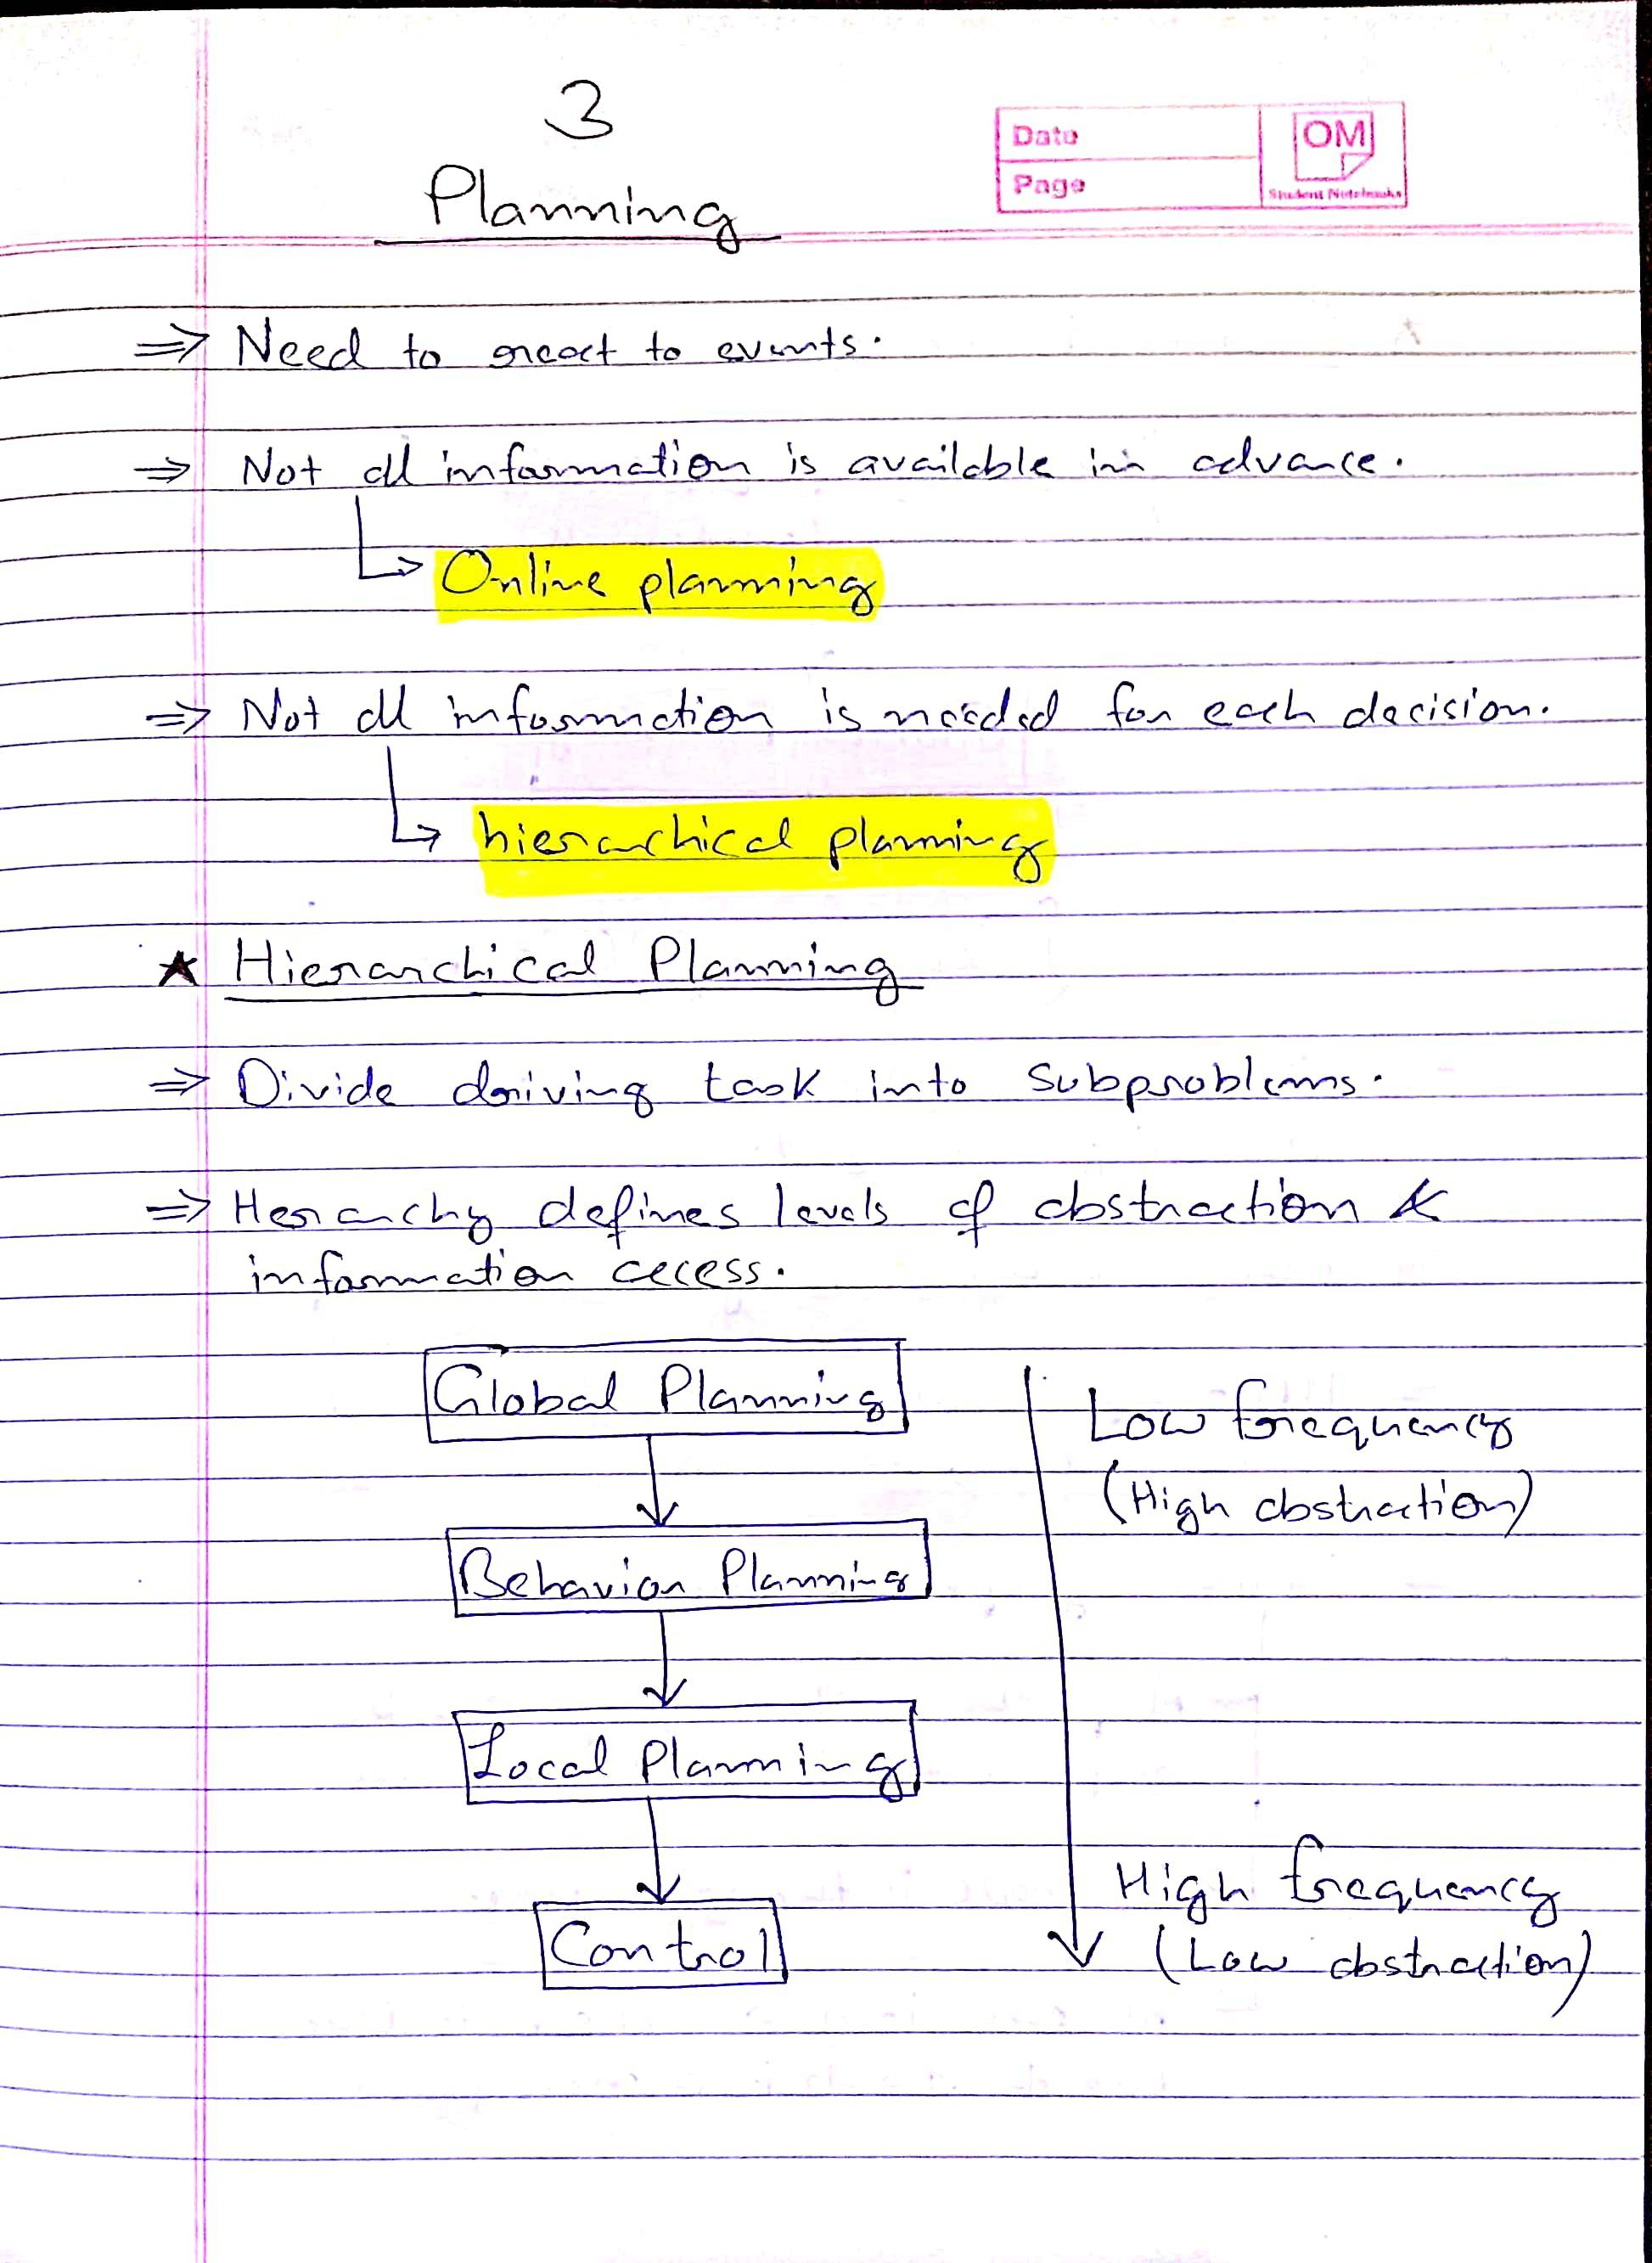 3
Planning
Date
Page
OM
Student Notebooks
⇒ Need to react to events.
⇒ Not all information is available in advance.
↳ Online planning
⇒ Not all information is needed for each decision.
↳ hierarchical planning
★ Hierarchical Planning
⇒ Divide driving task into subproblems.
⇒ Herarchy defines levels of abstraction &
information access.
Global Planning
Low frequency
(High abstraction)
Behavior Planning
Local Planning
High frequency
(Low abstraction)
Control